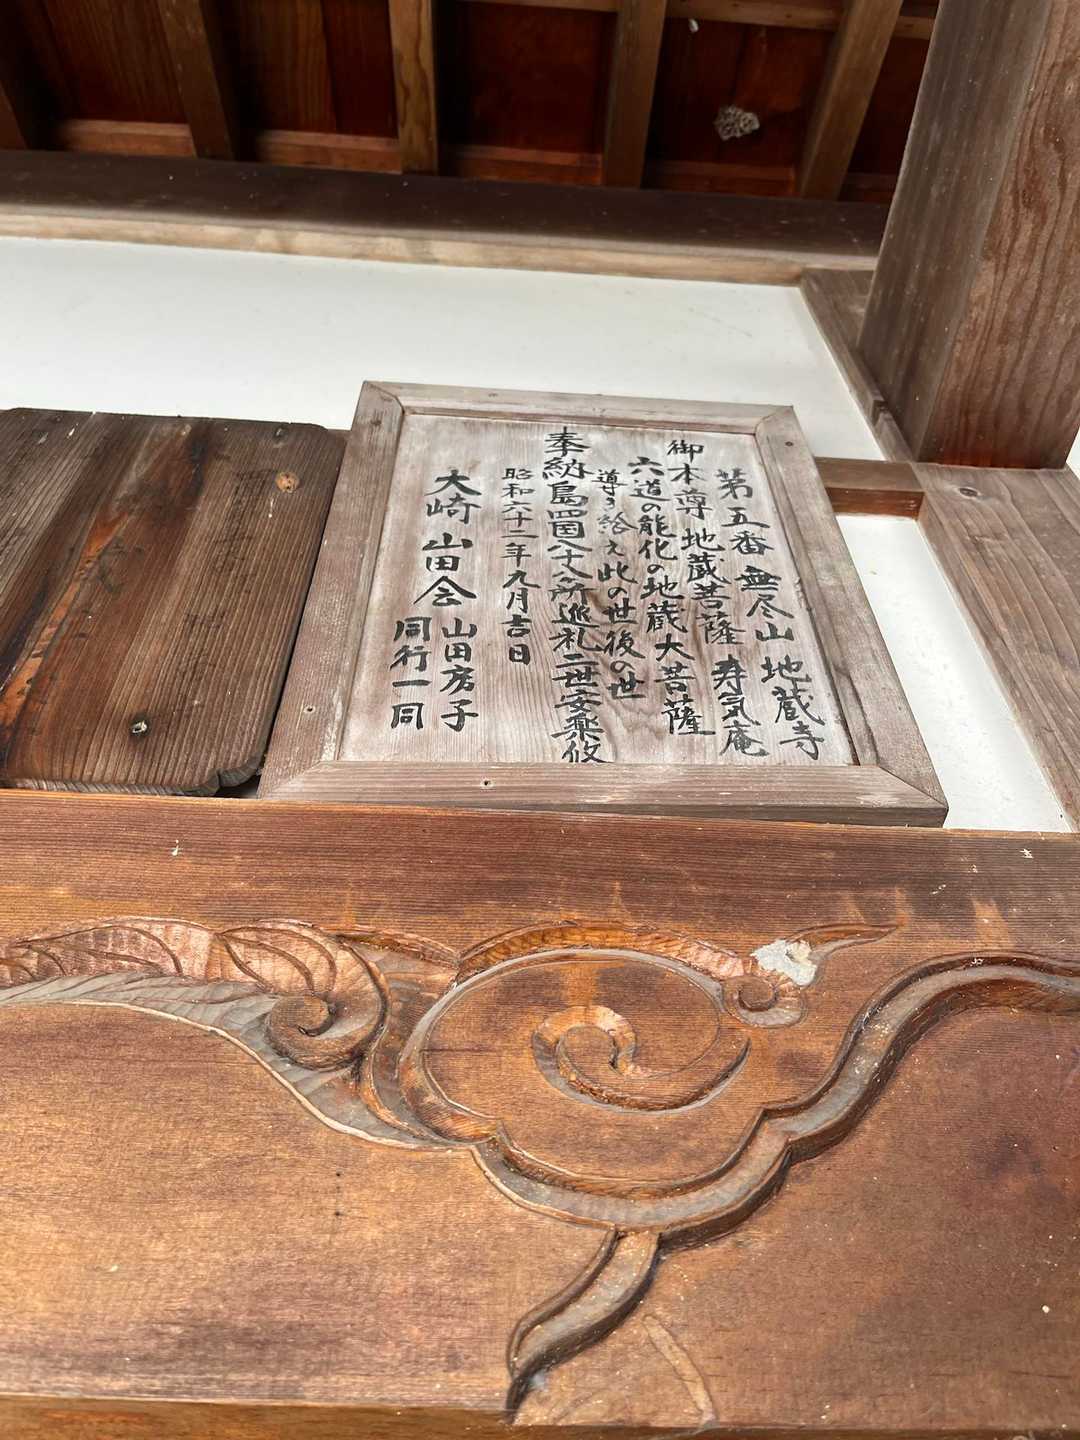 第五番 無尽山 地蔵寺
御本尊 地蔵菩薩 寿気庵
六道の能化の地蔵大菩薩
導き給え此の世後の世
奉納島四国八十八所巡礼二世安楽攸
昭和六十二年九月吉日
大崎山田会 山田房子
同行一同